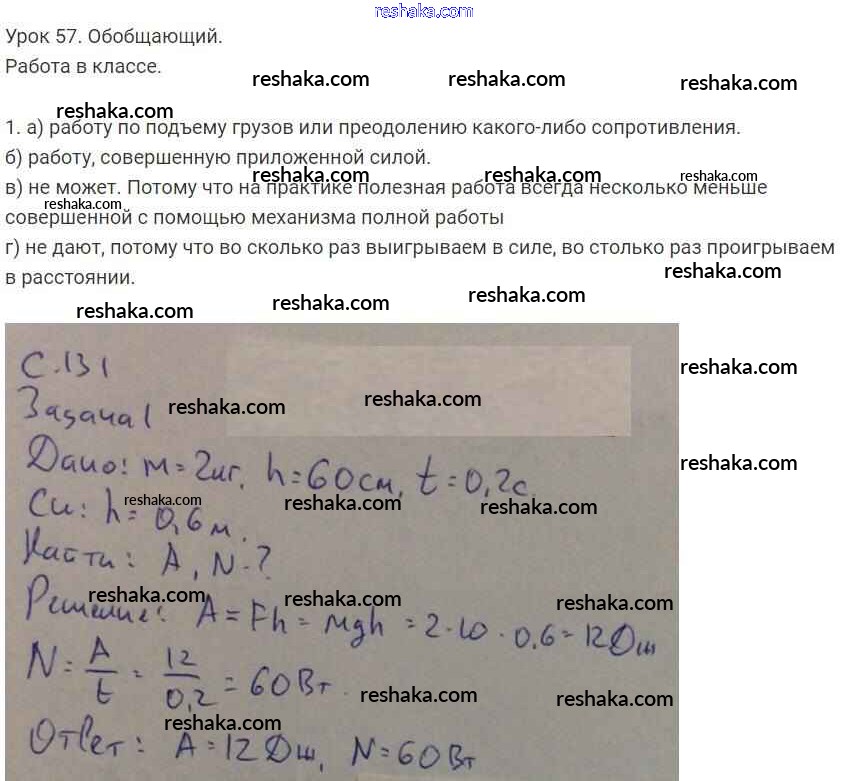 reshaka.com
Урок 57. Обобщающий.
Работа в классе.
reshaka.com reshaka.com reshaka.com
reshaka.com
1. а) работу по подъему грузов или преодолению какого-либо сопротивления.
б) работу, совершенную приложенной силой.
reshaka.com reshaka.com reshaka.com
в) не может. Потому что на практике полезная работа всегда несколько меньше
reshaka.com
совершенной с помощью механизма полной работы
г) не дают, потому что во сколько раз выигрываем в силе, во столько раз проигрываем
в расстоянии.
reshaka.com
reshaka.com reshaka.com reshaka.com
С.131
reshaka.com
Задача 1
reshaka.com reshaka.com
Дано: m = 2кг, h = 60см, t = 0,2с.
reshaka.com
Си: h = 0,6м.
reshaka.com reshaka.com reshaka.com
Найти: A, N - ?
Решение: A = Fh = mgh = 2·10·0,6 = 12Дж
reshaka.com reshaka.com reshaka.com
N = A/t = 12/0,2 = 60Вт.
reshaka.com reshaka.com reshaka.com
Ответ: A = 12Дж, N = 60Вт